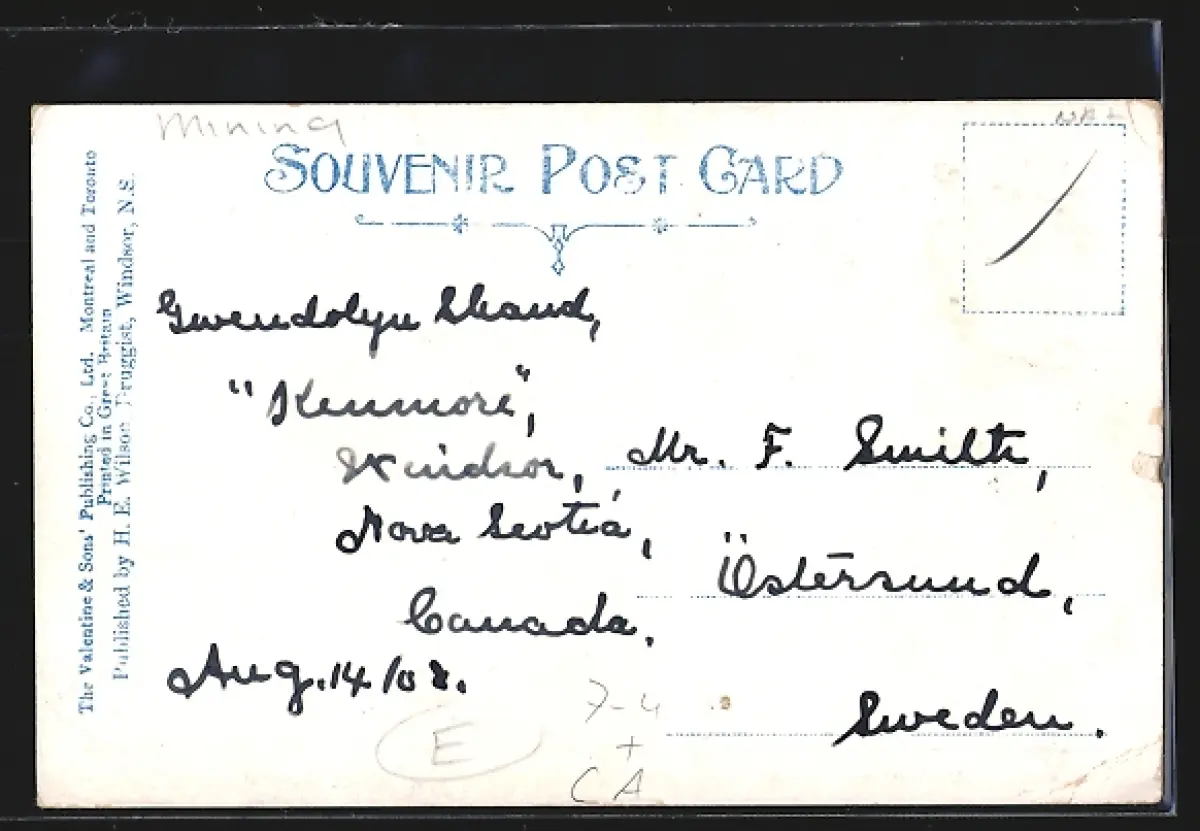 Mining
SOUVENIR POST CARD
The Valentine & Sons' Publishing Co., Ltd. Montreal and Toronto
Printed in Great Britain
Published by H. E. Wilson Druggist, Windsor, N.S.
Gwendolyn Shand,
"Kenmore",
Windsor,
Nova Scotia,
Canada.
Aug. 14/08.
Mr. F. Smilth,
Östersund,
Sweden.
E
7-4
+
CA